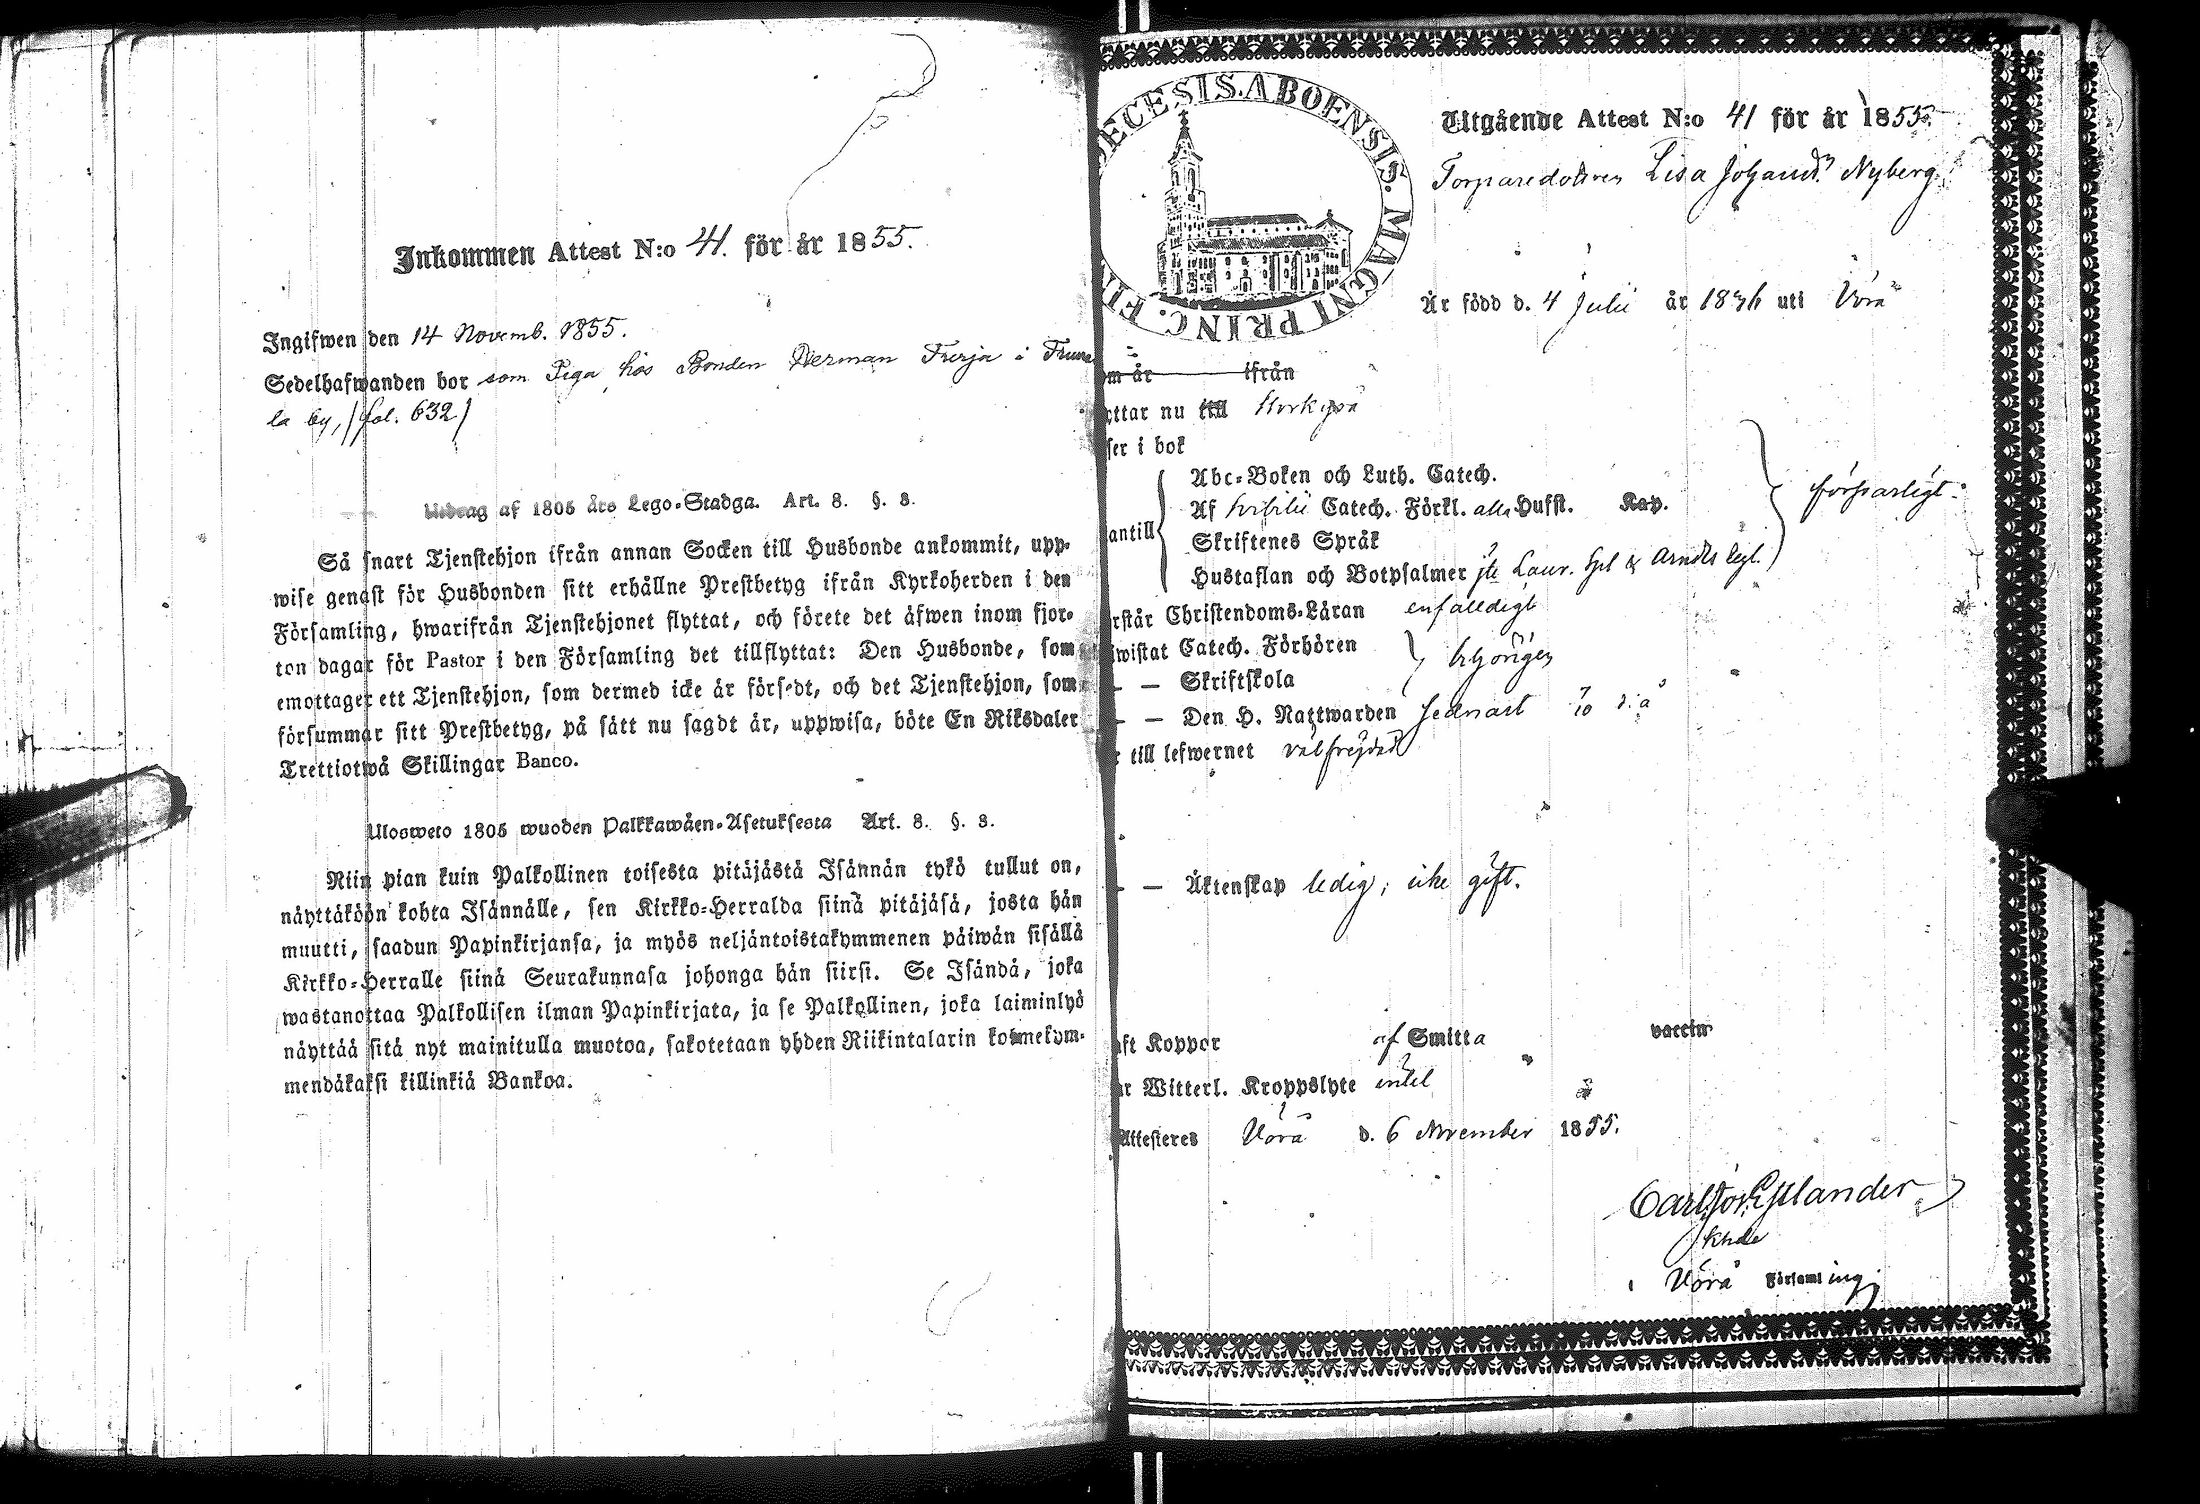 Inkommen Attest N:o 41. för år 1855.
Ingifwen den 14 Novemb. 1855.
Sedelhafwanden bor som Piga hos Bonden Herman Frerja i
la by, (fol. 632)
Utdrag af 1805 års Lego-Stadga. Art. 8. §. 8.
Så snart Tjenstehjon ifrån annan Socken till Husbonde ankommit, upp-
wise genast för Husbonden sitt erhållne Prestbetyg ifrån Kyrkoherden i den
Församling, hwarifrån Tjenstehjonet flyttat, och förete det äfwen inom fjor-
ton dagar för Pastor i den Församling det tillflyttat: Den Husbonde, som
emottager ett Tjenstehjon, som dermed icke är försedt, och det Tjenstehjon, som
försummar sitt Prestbetyg, på sätt nu sagdt är, uppwisa, böte En Riksdaler
Trettiotwå Skillingar Banco.
Ulosweto 1805 wuoden Palkkawäen-Asetuksesta Art. 8. §. 8.
Niin pian kuin Palkollinen toisesta pitäjästä Isännän tykö tullut on,
näyttäköön kohta Isännälle, sen Kirkko-Herralda siinä pitäjäsä, josta hän
muutti, saadun Papinkirjansa, ja myös neljäntoistakymmenen päiwän sisällä
Kirkko-Herralle siinä Seurakunnasa johonga hän siirsi. Se Isändä, joka
wastanottaa Palkollisen ilman Papinkirjata, ja se Palkollinen, joka laiminlyö
näyttää sitä nyt mainitulla muotoa, sakotetaan yhden Riikintalarin kolmekym-
mendäkaksi killinkiä Bankoa.
ECESIS. ABOENSIS. MAGNI PRINC. FIN
Utgående Attest N:o 41 för år 1855.
Torparedottren Lisa Johansdr Nyberg
Är född d. 4 Julii år 1836 uti Vörå
om år ifrån
ttar nu till Storkyro
ser i bok
Abc-Boken och Luth. Catech.
Af Svebilii Catech. Förkl. alla Hufst. Kap.
antill
Skriftenes Språk
Hustaflan och Botpsalmer jte Laur. Spl & Arndts
försvarligt.
rstår Christendoms-Läran enfaldigt
iwistat Catech. Förhören
behörigen
— — Skriftskola
— — Den H. Nattwarden sednast 7/10 d. å
r till lefwernet välfrejdad
— — Äktenskap ledig, icke gift.
aft Koppor af Smitta vaccin
ar Witterl. Kroppslyte intet
Attesteres Vörå d. 6 November 1855.
Carl Joh Estlander
Khde
i Vörå Församling